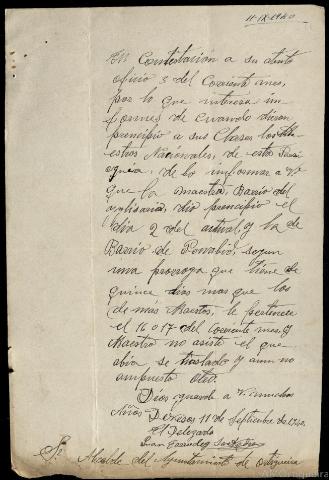 11-IX-1940
En Contestación a su atento
oficio 3 del Corriente mes,
por lo que interesa in
formes de cuando dieron
principio a sus Clases los Ma
estros Nacionales, de esta Parro
quia, debo informar a V.
que la maestra, Barrio del
dio principio el
dia 2 del actual, y la de
Barrio de según
una prorroga que tiene de
quince dias mas que los
de más Maestros, le pertenece
el 16 o 17 del Corriente mes, y
Maestro no asiste el que
abia se trasladó y aun no
an puesto otro.
Dios guarde a V. muchos
Años Devesos 11 de Septiembre de 1940.
El Delegado
Juan
Sr. Alcalde del Ayuntamiento de Ortigueira